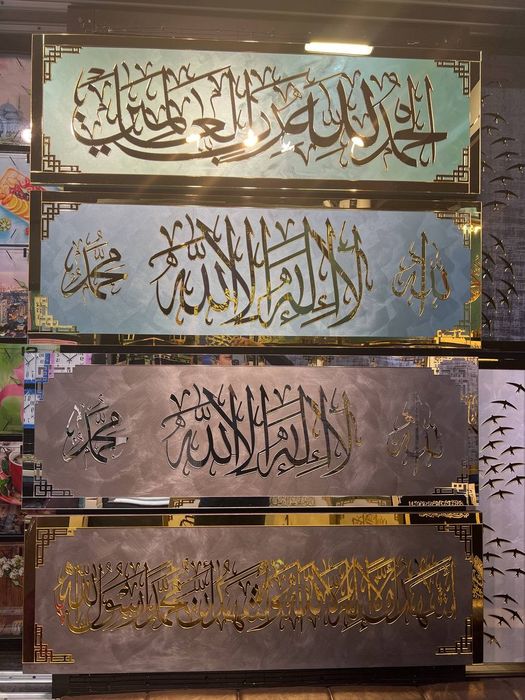 الحمد لله رب العالمين
الله لا إله إلا الله محمد
الله لا إله إلا الله محمد
أشهد أن لا إله إلا الله وأشهد أن محمدا رسول الله